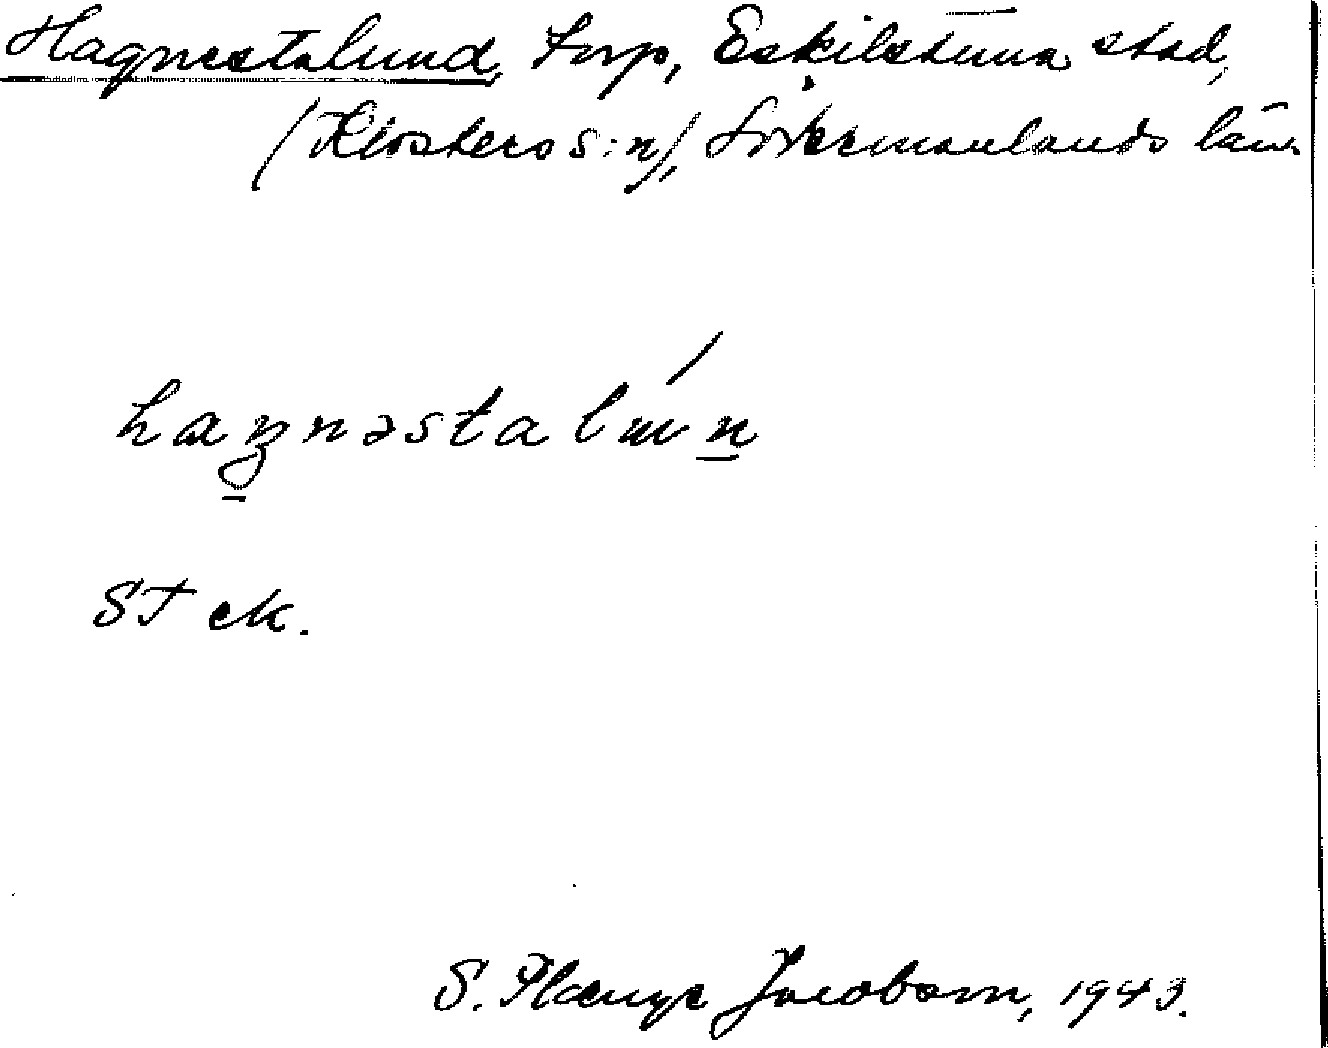 Hagnestalund, torp, Eskilstuna stad,
(Klosters s:n), Södermanlands län.
haŋnəstalún
ST ek.
S. Plænge Jacobson, 1943.